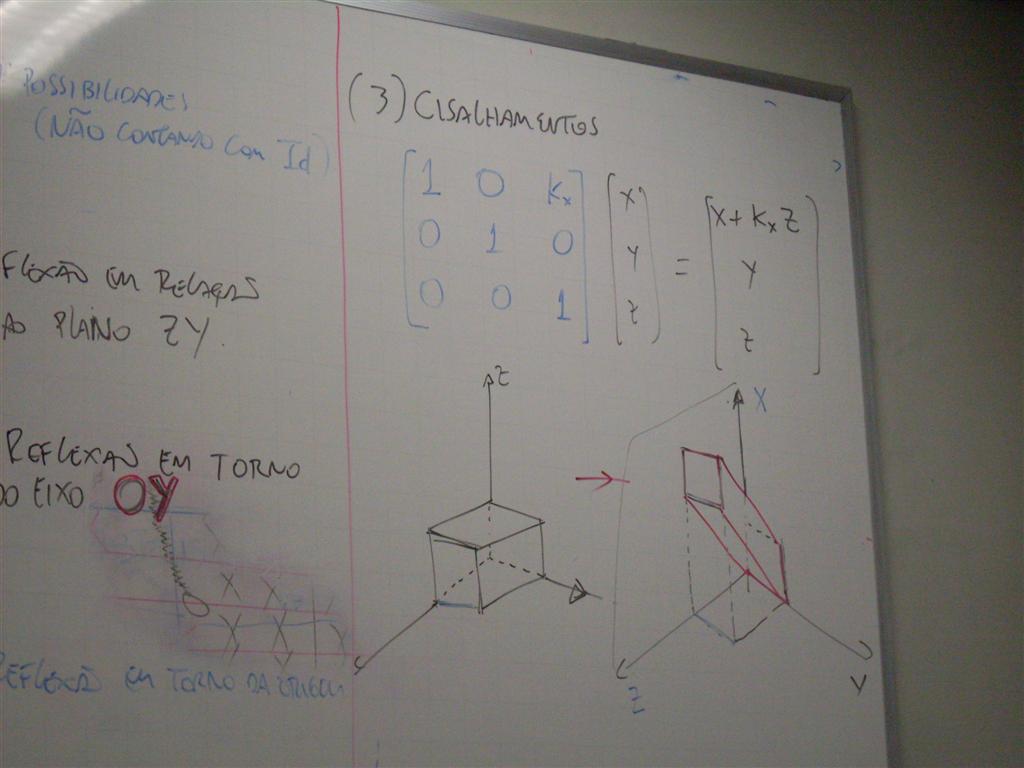 POSSIBILIDADES
(NÃO CONTANDO COM Id)
FLEXÃO EM RELAÇÃO
AO PLANO ZY.
REFLEXÃO EM TORNO
DO EIXO OY
REFLEXÃO EM TORNO DA ORIGEM
(3) CISALHAMENTOS
[1 0 kx] [x] = [x + kx z]
[0 1 0] [y] [y]
[0 0 1] [z] [z]
z
X
Z
Y